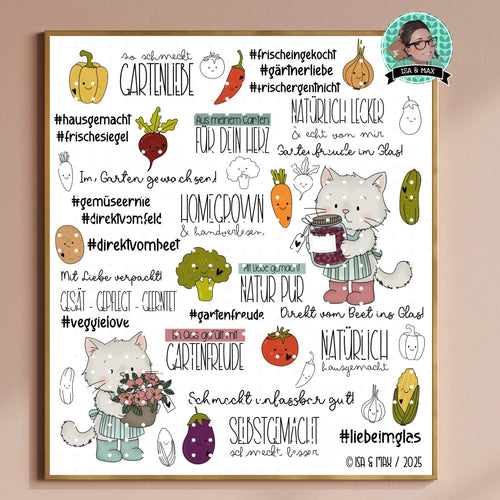 so schmeckt
GARTENLIEBE
#frischeingekocht
#gärtnerliebe
#frischergehtnicht
ISA & MAX
#hausgemacht
#frischesiegel
Aus meinem Garten
FÜR DEIN HERZ
NATÜRLICH LECKER
& echt von mir
Gartenfreude im Glas!
Im Garten gewachsen!
#gemüseernie
#direktvomfeld
#direktvombeet
HOMEGROWN
& handverlesen
Mit Liebe verpackt!
GESÄT - GEPFLEGT - GEERNTET
#veggielove
Mit Liebe gemacht
NATUR PUR
#gartenfreude
Direkt vom Beet ins Glas!
Ein Glas gefüllt mit
GARTENFREUDE
NATÜRLICH
hausgemacht
Schmeckt unfassbar gut!
SELBSTGEMACHT
schmeckt besser
#liebeimglas
© ISA & MAX / 2025